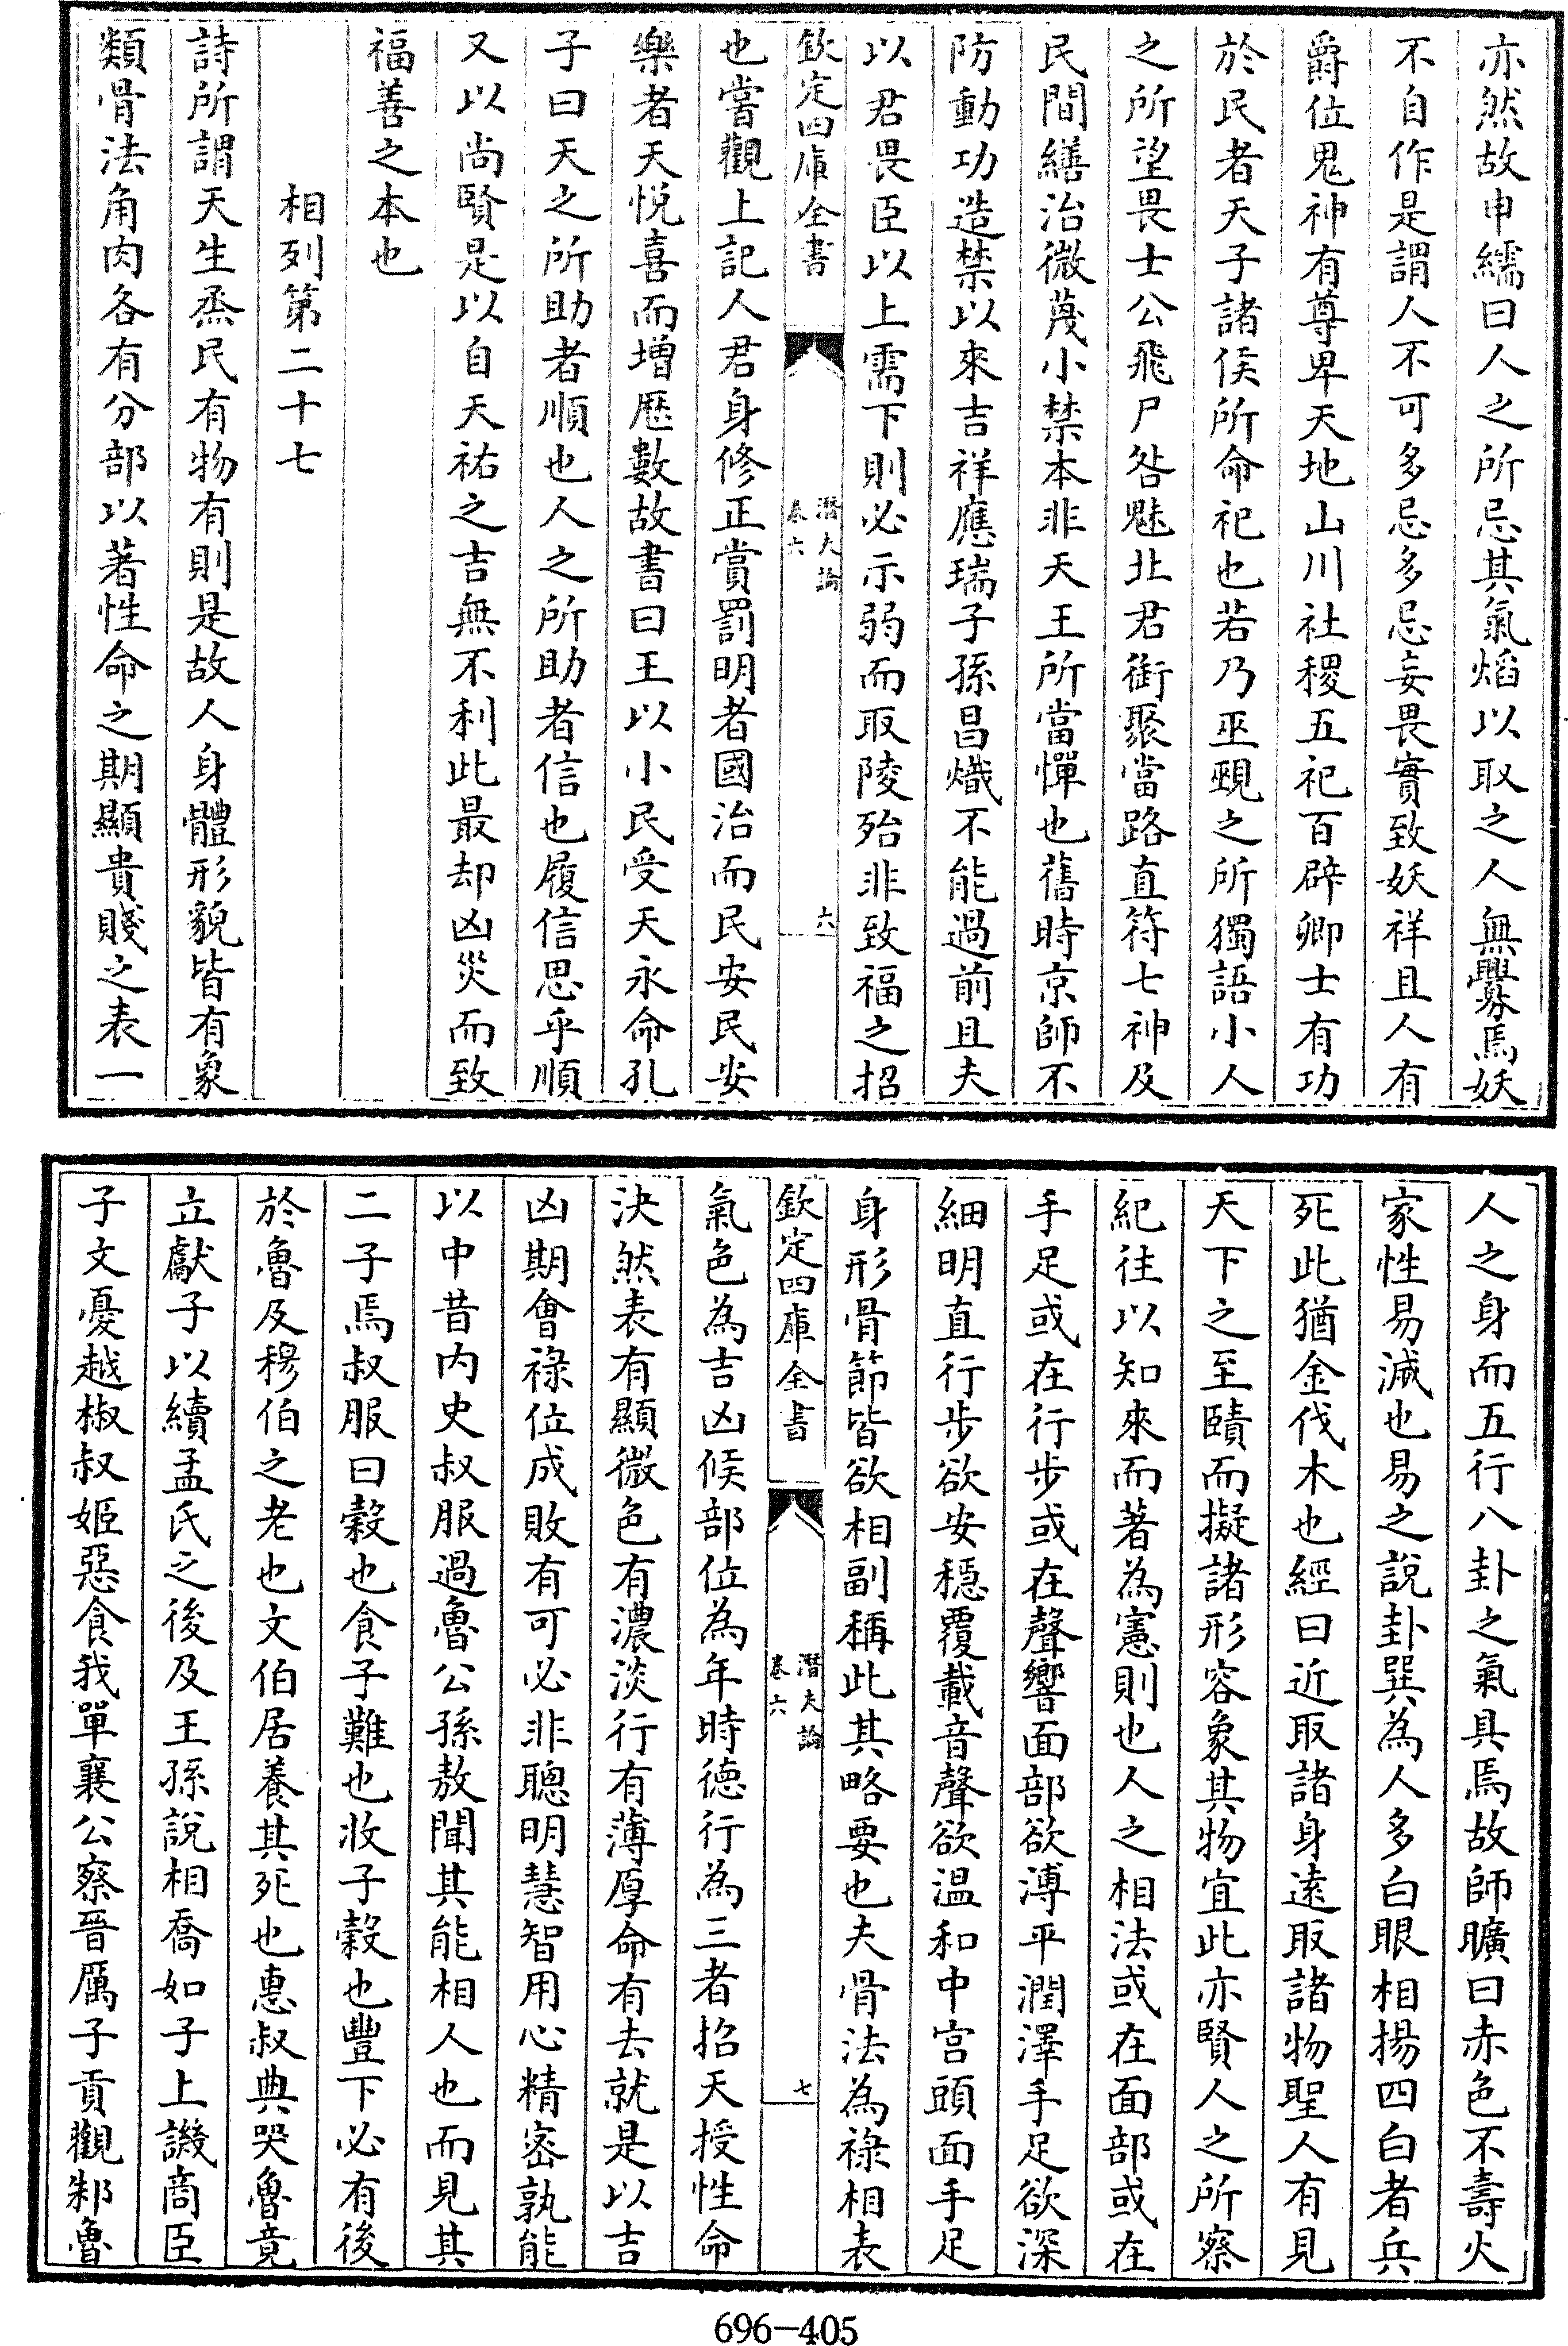 亦然故申繻曰人之所忌其氣焰以取之人無釁焉妖
不自作是謂人不可多忌多忌妄畏實致妖祥且人有
爵位鬼神有尊卑天地山川社稷五祀百辟卿士有功
於民者天子諸侯所命祀也若乃巫覡之所獨語小人
之所望畏士公飛尸咎魅北君銜聚當路直符七神及
民間繕治微蔑小禁本非天王所當憚也舊時京師不
防動功造禁以來吉祥應瑞子孫昌熾不能過前且夫
以君畏臣以上需下則必示弱而取陵殆非致福之招
欽定四庫全書
潛夫論
卷六
六
也嘗觀上記人君身修正賞罰明者國治而民安民安
樂者天悅喜而增歷數故書曰王以小民受天永命孔
子曰天之所助者順也人之所助者信也履信思乎順
又以尚賢是以自天祐之吉無不利此最却凶災而致
福善之本也
相列第二十七
詩所謂天生烝民有物有則是故人身體形貌皆有象
類骨法角肉各有分部以著性命之期顯貴賤之表一
人之身而五行八卦之氣具焉故師曠曰赤色不壽火
家性易滅也易之說卦巽為人多白眼相揚四白者兵
死此猶金伐木也經曰近取諸身遠取諸物聖人有見
天下之至賾而擬諸形容象其物宜此亦賢人之所察
紀往以知來而著為憲則也人之相法或在面部或在
手足或在行步或在聲響面部欲溥平潤澤手足欲深
細明直行步欲安穩覆載音聲欲溫和中宮頭面手足
身形骨節皆欲相副稱此其略要也夫骨法為祿相表
欽定四庫全書
潛夫論
卷六
七
氣色為吉凶候部位為年時德行為三者招天授性命
決然表有顯微色有濃淡行有薄厚命有去就是以吉
凶期會祿位成敗有可必非聰明慧智用心精密孰能
以中昔內史叔服過魯公孫敖聞其能相人也而見其
二子焉叔服曰穀也食子難也收子穀也豐下必有後
於魯及穆伯之老也文伯居養其死也惠叔典哭魯竟
立獻子以續孟氏之後及王孫說相喬如子上譏商臣
子文憂越椒叔姬惡食我單襄公察晉厲子貢觀邾魯
696-405